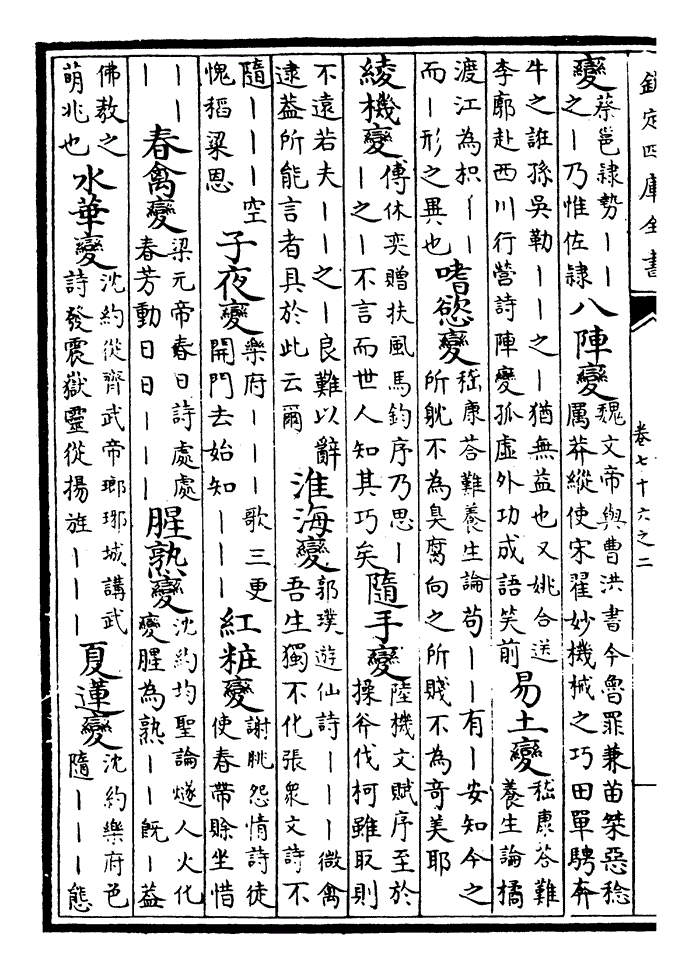 欽定四庫全書
卷七十六之二
變
蔡邕隷勢丨丨
之丨乃惟佐隷
八陣變
魏文帝與曹洪書今魯罪兼苗桀惡稔
厲莽縱使宋翟妙機械之巧田單騁奔
牛之誑孫吳勒丨丨之丨猶無益也又姚合送
李廓赴西川行營詩陣變孤虛外功成語笑前
易土變
嵇康答難
養生論橘
渡江為枳丨丨
而丨形之異也
嗜慾變
嵇康答難養生論苟丨丨有丨安知今之
所躭不為臭腐向之所賤不為竒美耶
綾機變
傅休奕贈扶風馬鈞序乃思丨
丨之丨不言而世人知其巧矣
隨手變
陸機文賦序至於
操斧伐柯雖取則
不遠若夫丨丨之丨良難以辭
逮葢所能言者具於此云爾
淮海變
郭璞遊仙詩丨丨丨微禽
吾生獨不化張衆文詩不
隨丨丨丨空
愧稻粱恩
子夜變
樂府丨丨丨歌三更
開門去始知丨丨丨
紅粧變
謝朓怨情詩徒
使春帶賒坐惜
丨丨
丨
春禽變
梁元帝春日詩處處
春芳動日日丨丨丨
腥熟變
沈約均聖論燧人火化
變腥為熟丨丨既丨葢
佛教之
萌兆也
水華變
沈約從齊武帝瑯琊城講武
詩發震嶽靈從揚旌丨丨丨
夏蓮變
沈約樂府色
隨丨丨丨態